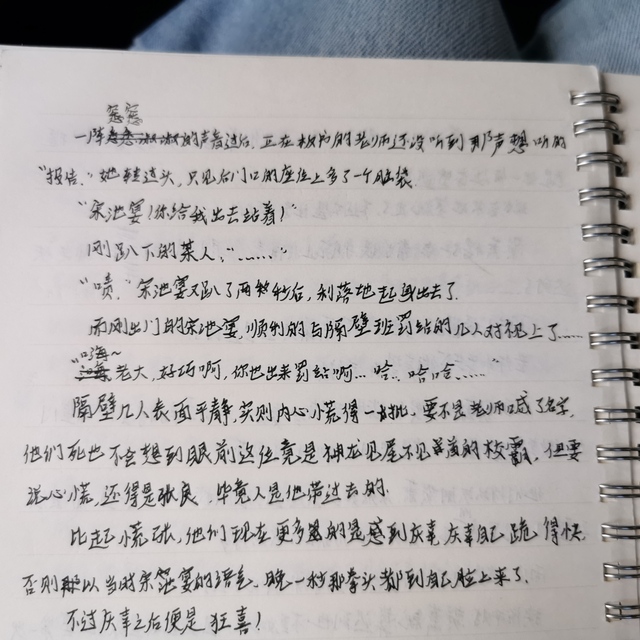 窸窸
一阵窣窣的声音过后,正在板书的老师还没听到那声想听的
“报告。”她转过头,只见后门口的座位上多了一个脑袋.
“宋池宴!你给我出去站着!”
刚趴下的某人:“……”
“啧.”宋池宴又趴了两秒后,利落地起身出去了.
而刚出门的宋池宴,顺利的与隔壁班罚站的几人对视上了……
“嗨~
老大,好巧啊,你也出来罚站啊…哈..哈哈……”
隔壁几人表面平静,实则内心慌得一批,要不是老师喊了名字,
他们死也不会想到眼前这位竟是神龙见尾不见首的校霸,但要
说心慌,还得是张良,毕竟人是他带过去的.
比起慌张,他们现在更多的是感到庆幸,庆幸自己跪得快,
否则就以当时宋池宴的语气,晚一秒那拳头都到自己脸上来了.
不过庆幸之后便是狂喜!